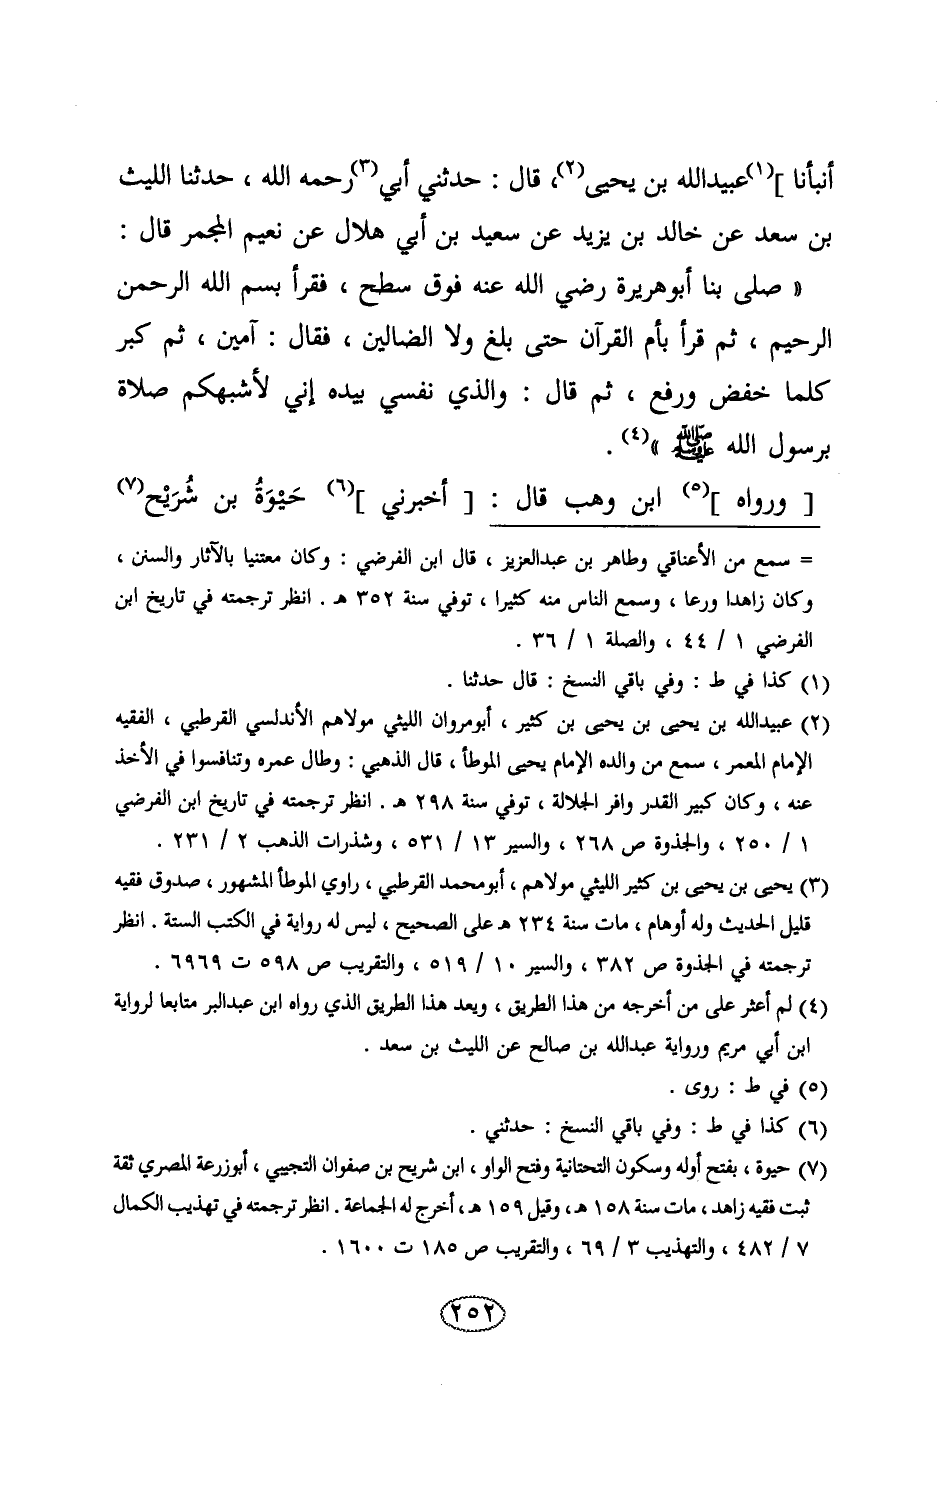 أنبأنا ](١)عبيدالله بن يحيى(٢)، قال : حدثني أبي(٣)رحمه الله ، حدثنا الليث
بن سعد عن خالد بن يزيد عن سعيد بن أبي هلال عن نعيم المجمر قال :
« صلى بنا أبوهريرة رضي الله عنه فوق سطح ، فقرأ بسم الله الرحمن
الرحيم ، ثم قرأ بأم القرآن حتى بلغ ولا الضالين ، فقال : آمين ، ثم كبر
كلما خفض ورفع ، ثم قال : والذي نفسي بيده إني لأشبهكم صلاة
برسول الله ﷺ »(٤) .
[ ورواه ](٥) ابن وهب قال : [ أخبرني ](٦) حَيْوَةُ بن شُرَيْح(٧)
= سمع من الأعناقي وطاهر بن عبدالعزيز ، قال ابن الفرضي : وكان معتنيا بالآثار والسنن ،
وكان زاهدا ورعا ، وسمع الناس منه كثيرا ، توفي سنة ٣٥٢ هـ . انظر ترجمته في تاريخ ابن
الفرضي ١ / ٤٤ ، والصلة ١ / ٣٦ .
(١) كذا في ط : وفي باقي النسخ : قال حدثنا .
(٢) عبيدالله بن يحيى بن يحيى بن كثير ، أبومروان الليثي مولاهم الأندلسي القرطبي ، الفقيه
الإمام المعمر ، سمع من والده الإمام يحيى الموطأ ، قال الذهبي : وطال عمره وتنافسوا في الأخذ
عنه ، وكان كبير القدر وافر الجلالة ، توفي سنة ٢٩٨ هـ . انظر ترجمته في تاريخ ابن الفرضي
١ / ٢٥٠ ، والجذوة ص ٢٦٨ ، والسير ١٣ / ٥٣١ ، وشذرات الذهب ٢ / ٢٣١ .
(٣) يحيى بن يحيى بن كثير الليثي مولاهم ، أبومحمد القرطبي ، راوي الموطأ المشهور ، صدوق فقيه
قليل الحديث وله أوهام ، مات سنة ٢٣٤ هـ على الصحيح ، ليس له رواية في الكتب الستة . انظر
ترجمته في الجذوة ص ٣٨٢ ، والسير ١٠ / ٥١٩ ، والتقريب ص ٥٩٨ ت ٦٩٦٩ .
(٤) لم أعثر على من أخرجه من هذا الطريق ، ويعد هذا الطريق الذي رواه ابن عبدالبر متابعا لرواية
ابن أبي مريم ورواية عبدالله بن صالح عن الليث بن سعد .
(٥) في ط : روى .
(٦) كذا في ط : وفي باقي النسخ : حدثني .
(٧) حيوة ، بفتح أوله وسكون التحتانية وفتح الواو ، ابن شريح بن صفوان التجيبي ، أبوزرعة المصري ثقة
ثبت فقيه زاهد ، مات سنة ١٥٨ هـ ، وقيل ١٥٩ هـ ، أخرج له الجماعة . انظر ترجمته في تهذيب الكمال
٧ / ٤٨٢ ، والتهذيب ٣ / ٦٩ ، والتقريب ص ١٨٥ ت ١٦٠٠ .
٢٥٢